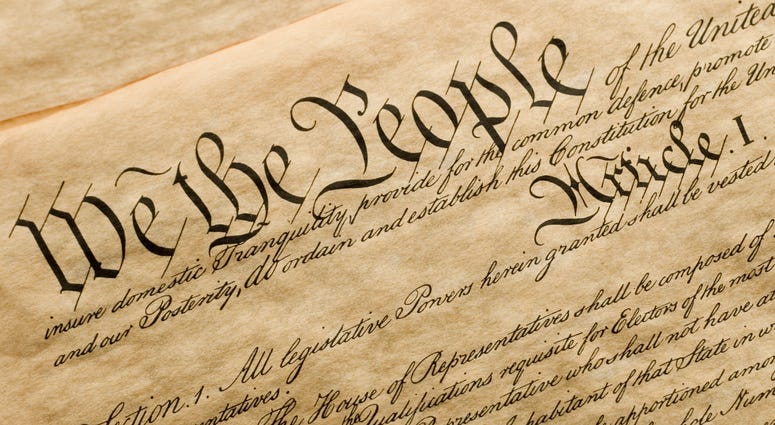 We the People of the United
insure domestic Tranquility, provide for the common defence, promote
and our Posterity, do ordain and establish this Constitution for the Un
Article. I.
Section. 1. All legislative Powers herein granted shall be vested
ntatives.
The House of Representatives shall be composed of
the Qualifications requisite for Electors of the most
Representative who shall not have a
nhabitant of that State in w
be apportioned amon
hole Num